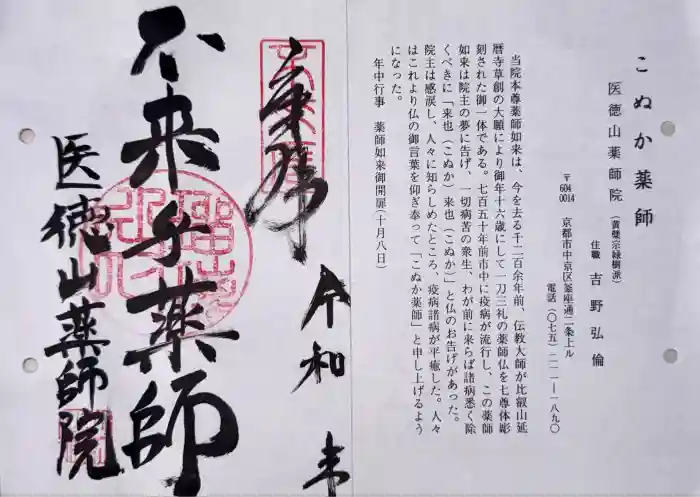 こぬか薬師
医徳山薬師院(黄檗宗緑樹派)
住職 吉野弘倫
〒604 0014 京都市中京区釜座通二条上ル
電話(〇七五)二一一―一八九〇
当院本尊薬師如来は、今を去る千二百余年前、伝教大師が比叡山延
暦寺草創の大願により御年十六歳にして一刀三礼の薬師仏を七尊体彫
刻された御一体である。七百五十年前市中に疫病が流行し、この薬師
如来は院主の夢に告げ、一切病苦の衆生、わが前に来らば諸病悉く除
くべきに「来也(こぬか)来也(こぬか)」と仏のお告げがあった。
院主は感涙し、人々に知らしめたところ、疫病諸病が平癒した。人々
はこれより仏の御言葉を仰ぎ奉って「こぬか薬師」と申し上げるよう
になった。
年中行事 薬師如来御開扉(十月八日)
奉拝
令和 年
不来乎薬師
医徳山薬師院